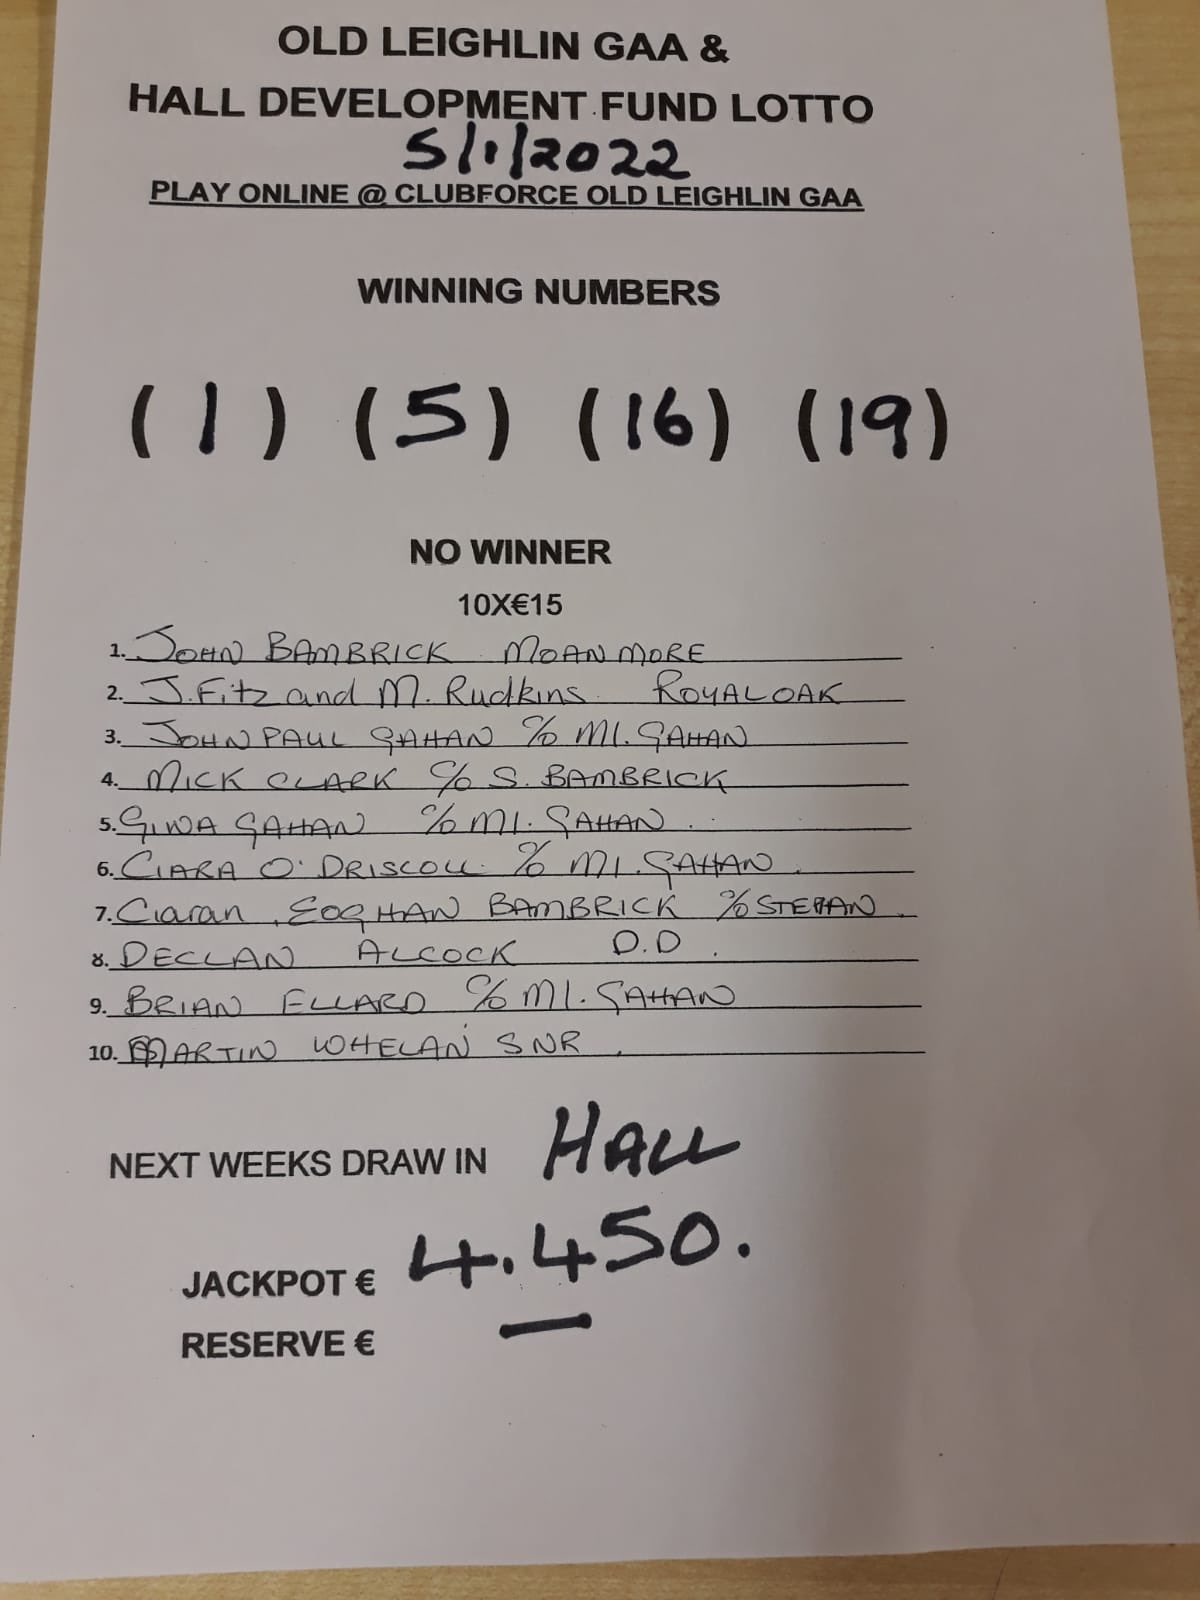 OLD LEIGHLIN GAA &
HALL DEVELOPMENT FUND LOTTO
5/1/2022
PLAY ONLINE @ CLUBFORCE OLD LEIGHLIN GAA
WINNING NUMBERS
(1) (5) (16) (19)
NO WINNER
10X€15
1. JOHN BAMBRICK MOANMORE
2. J. Fitz and M. Rudkins ROYALOAK
3. JOHN PAUL GAHAN C/O MI. GAHAN
4. MICK CLARK C/O S. BAMBRICK
5. GINA GAHAN C/O MI. GAHAN
6. CIARA O'DRISCOLL C/O MI. GAHAN
7. Ciaran, EOGHAN BAMBRICK C/O STEPAN
8. DECLAN ALCOCK D.D
9. BRIAN ELLARD C/O MI. GAHAN
10. MARTIN WHELAN SNR
NEXT WEEKS DRAW IN HALL
JACKPOT € 4.450.
RESERVE € —